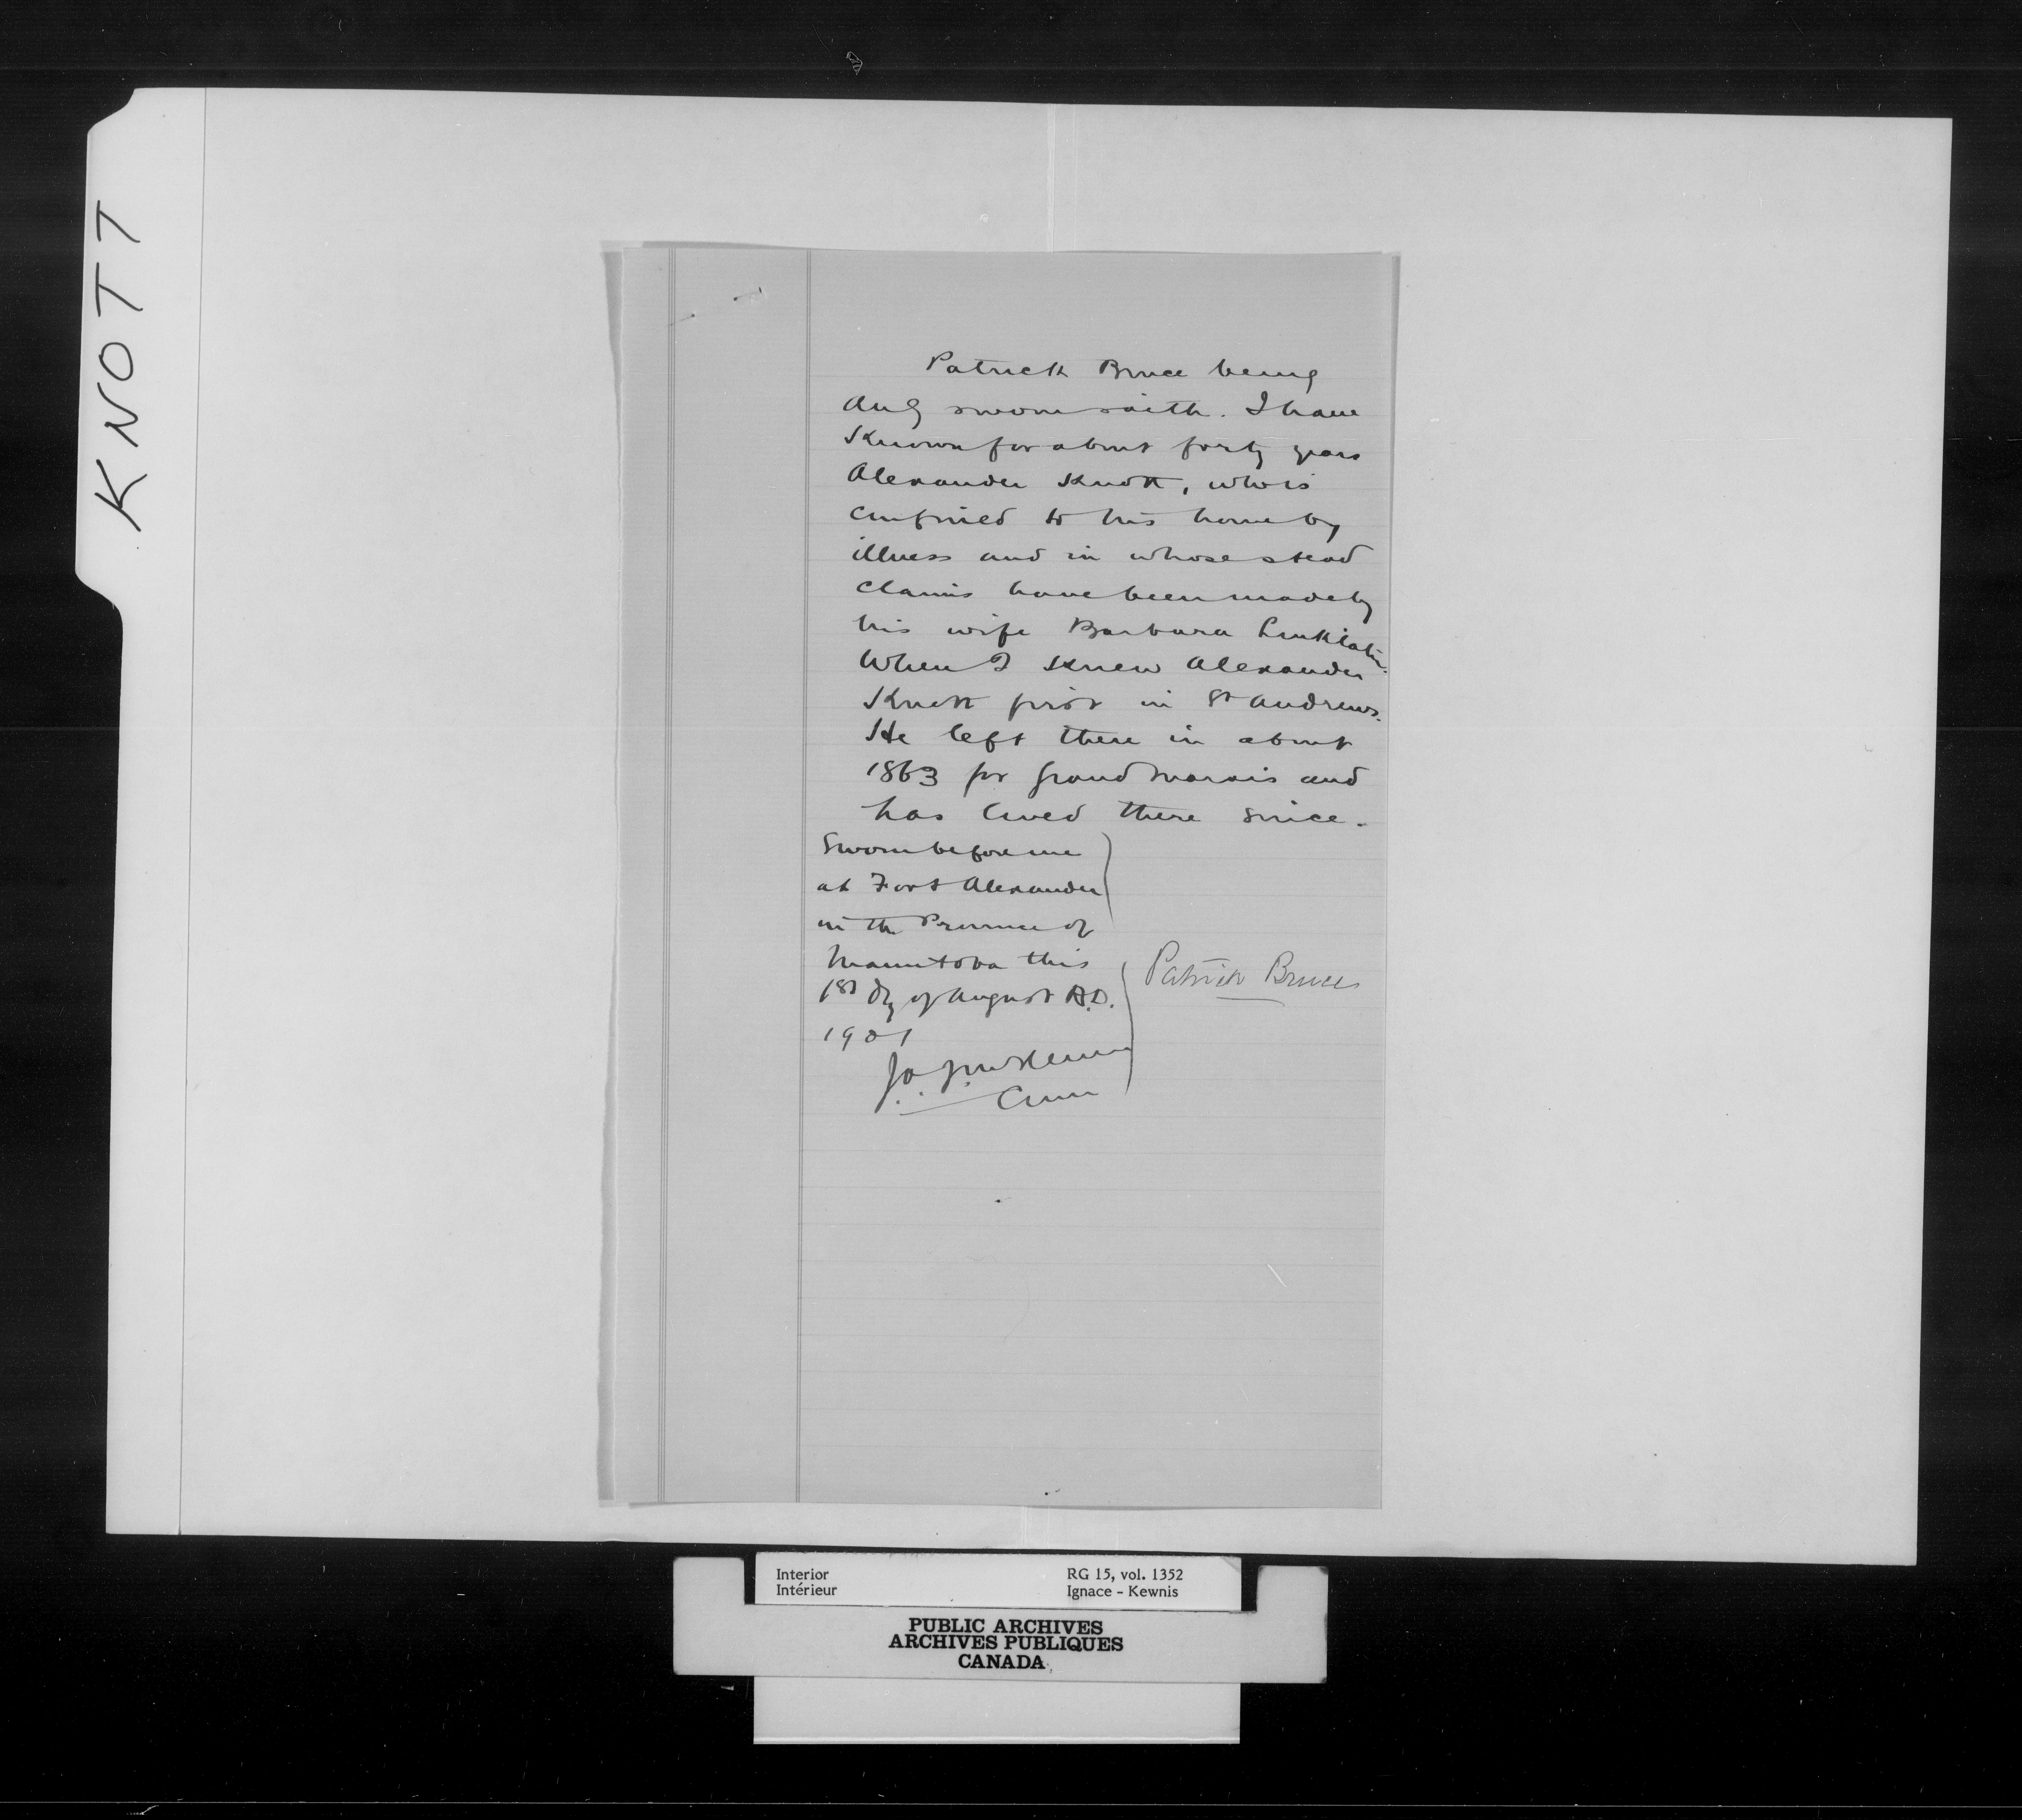 KNOTT
Patrick Bruce being
duly sworn saith. I have
known for about forty years
Alexander Knott, who is
confined to his home by
illness and in whose stead
claims have been made by
his wife Barbara Linklater.
When I knew Alexander
Knott first in St Andrews.
He left there in about
1863 for Grand Marais and
has lived there since.
Sworn before me
at Fort Alexander
in the Province of
Manitoba this
1st dy of August A.D.
1901
Patrick Bruce
Interior
Intérieur
RG 15, vol. 1352
Ignace - Kewnis
PUBLIC ARCHIVES
ARCHIVES PUBLIQUES
CANADA